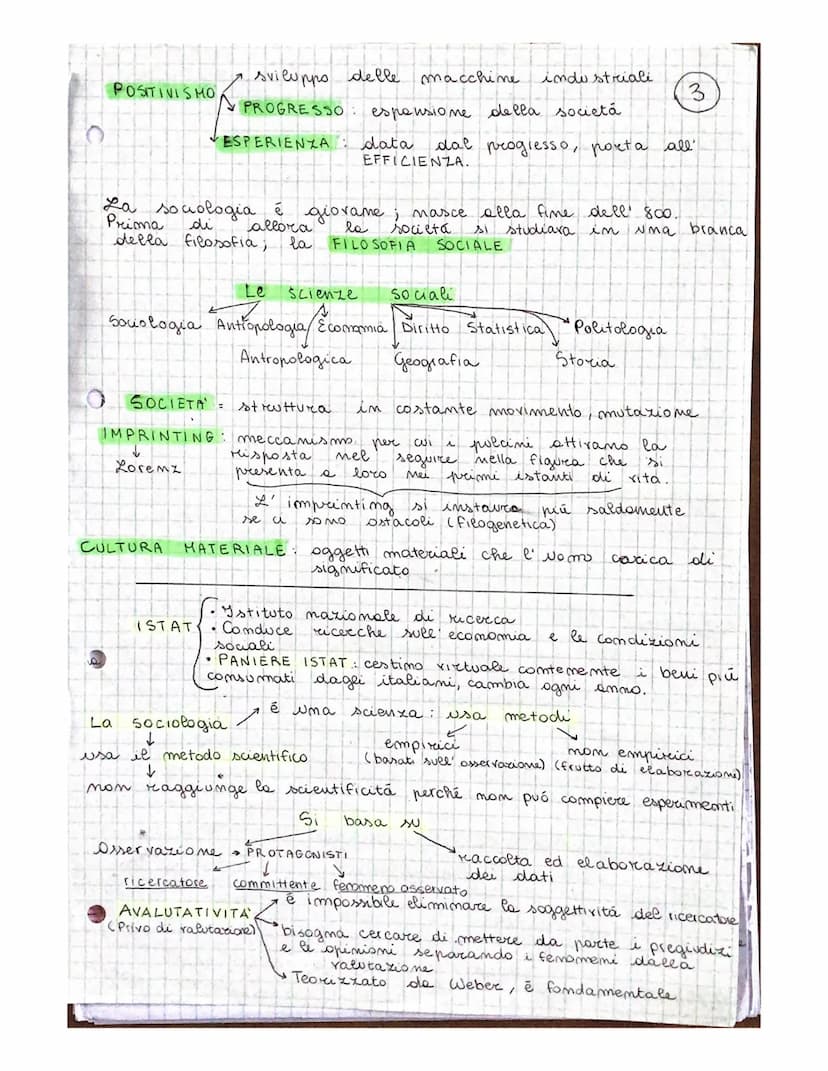 sviluppo delle macchine industriali
3
POSITIVISMO
PROGRESSO : espansione della società
ESPERIENZA : data dal progresso, porta all'
EFFICIENZA.
La sociologia é giovane; nasce alla fine dell' 800.
Prima di allora la società si studiava in una branca
della filosofia; la FILOSOFIA SOCIALE
Le scienze sociali
Sociologia Antropologia Economia Diritto Statistica Politologia
Antropologica Geografia Storia
SOCIETA' = struttura in costante movimento, mutazione
IMPRINTING : meccanismo per cui i pulcini attivano la
Lorenz risposta nel seguire nella figura che si
presenta a loro nei primi istanti di vita.
L' imprinting si instaura piú saldamente
se ci sono ostacoli (filogenetica)
CULTURA MATERIALE : oggetti materiali che l' uomo carica di
significato
ISTAT
• Istituto nazionale di ricerca
• Conduce ricerche sull' economia e le condizioni
sociali
• PANIERE ISTAT : cestino virtuale contenente i beni piú
consumati dagli italiani, cambia ogni anno.
La sociologia é una scienza : usa metodi
empirici non empirici
usa il metodo scientifico (basati sull' osservazione) (frutto di elaborazioni)
non raggiunge la scientificitá perché non puó compiere esperimenti
Si basa su
Osservazione → PROTAGONISTI
raccolta ed elaborazione
dei dati
ricercatore committente fenomeno osservato
é impossibile eliminare la soggettivitá del ricercatore
AVALUTATIVITA'
(Privo di valutazione)
bisogna cercare di mettere da parte i pregiudizi
e le opinioni separando i fenomeni dalla
valutazione
Teorizzato da Weber, é fondamentale